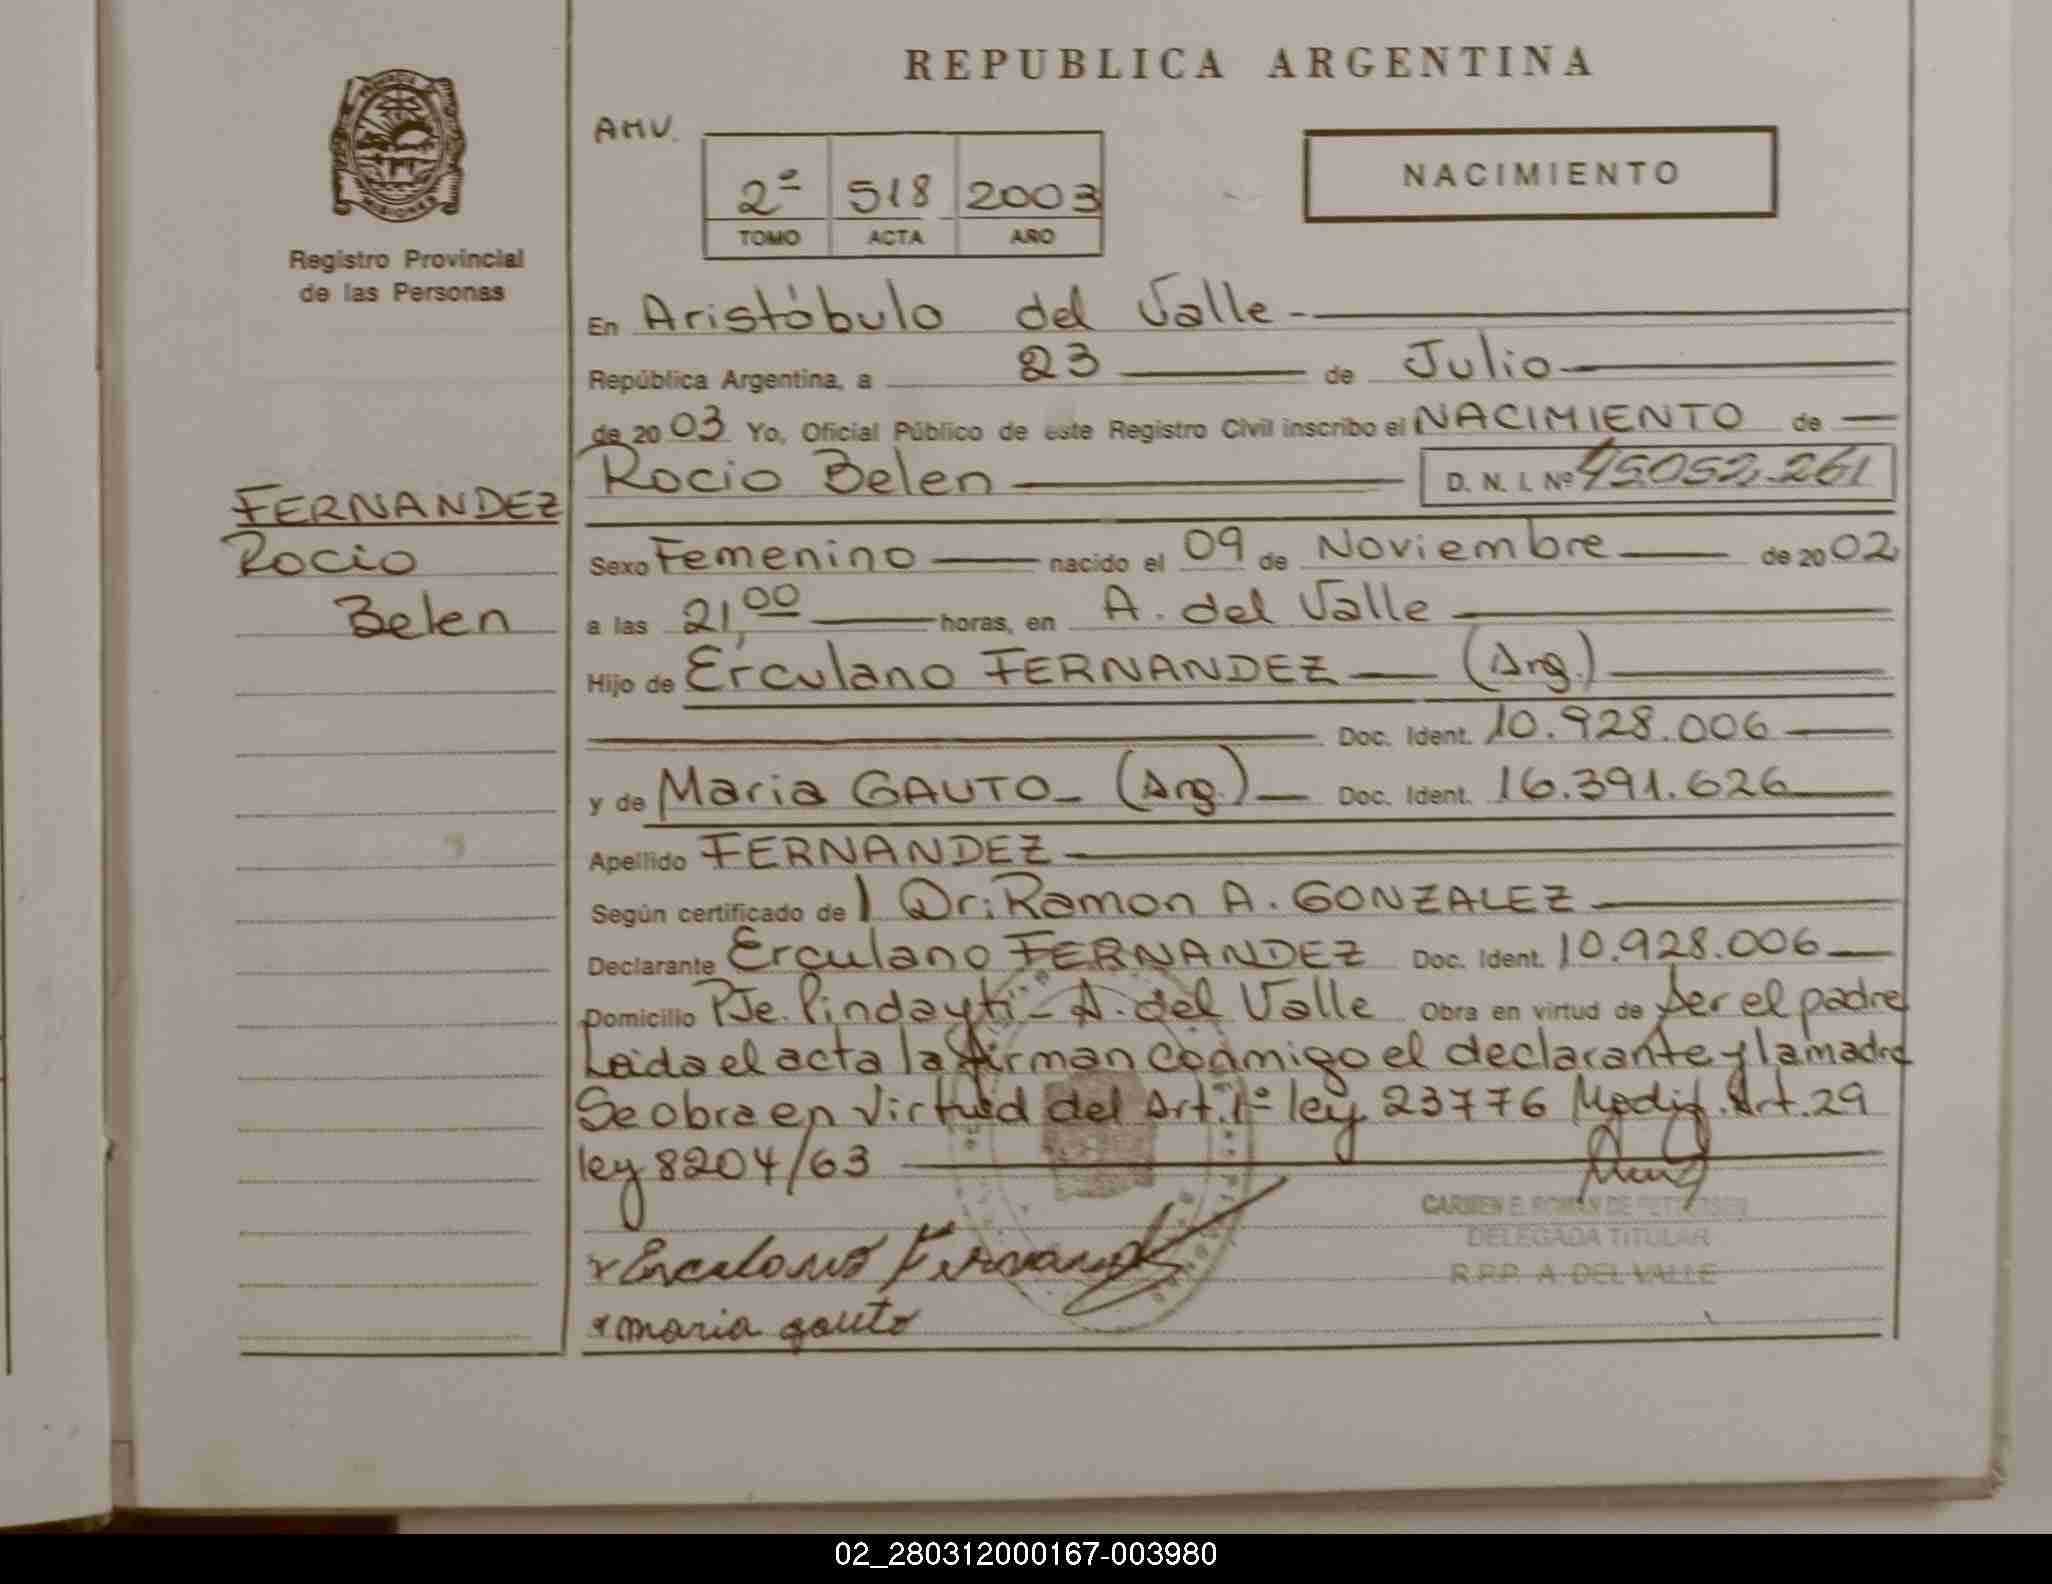 REPUBLICA ARGENTINA
AMV.
2º 518 2003
TOMO ACTA AÑO
NACIMIENTO
MISIONES
Registro Provincial
de las Personas
FERNANDEZ
Rocio
Belen
En Aristóbulo del Valle
República Argentina, a 23 de Julio
de 2003 Yo, Oficial Público de este Registro Civil inscribo el NACIMIENTO de
Rocio Belen D. N. I. Nº 45.052.261
Sexo Femenino nacido el 09 de Noviembre de 2002
a las 21,00 horas, en A. del Valle
Hijo de Erculano FERNANDEZ (Arg.)
Doc. Ident. 10.928.006
y de Maria GAUTO (Arg.) Doc. Ident. 16.391.626
Apellido FERNANDEZ
Según certificado de Dr: Ramon A. GONZALEZ
Declarante Erculano FERNANDEZ Doc. Ident. 10.928.006
Domicilio PJe. Pindayti - A. del Valle Obra en virtud de ser el padre
Leida el acta la firman conmigo el declarante y la madre
Se obra en virtud del Art. 1º ley 23776 Modif. Art. 29
ley 8204/63
CARMEN E. ROMAN DE
DELEGADA TITULAR
R.P.P. A. DEL VALLE
Erculano Fernandez
maria gauto
02_280312000167-003980